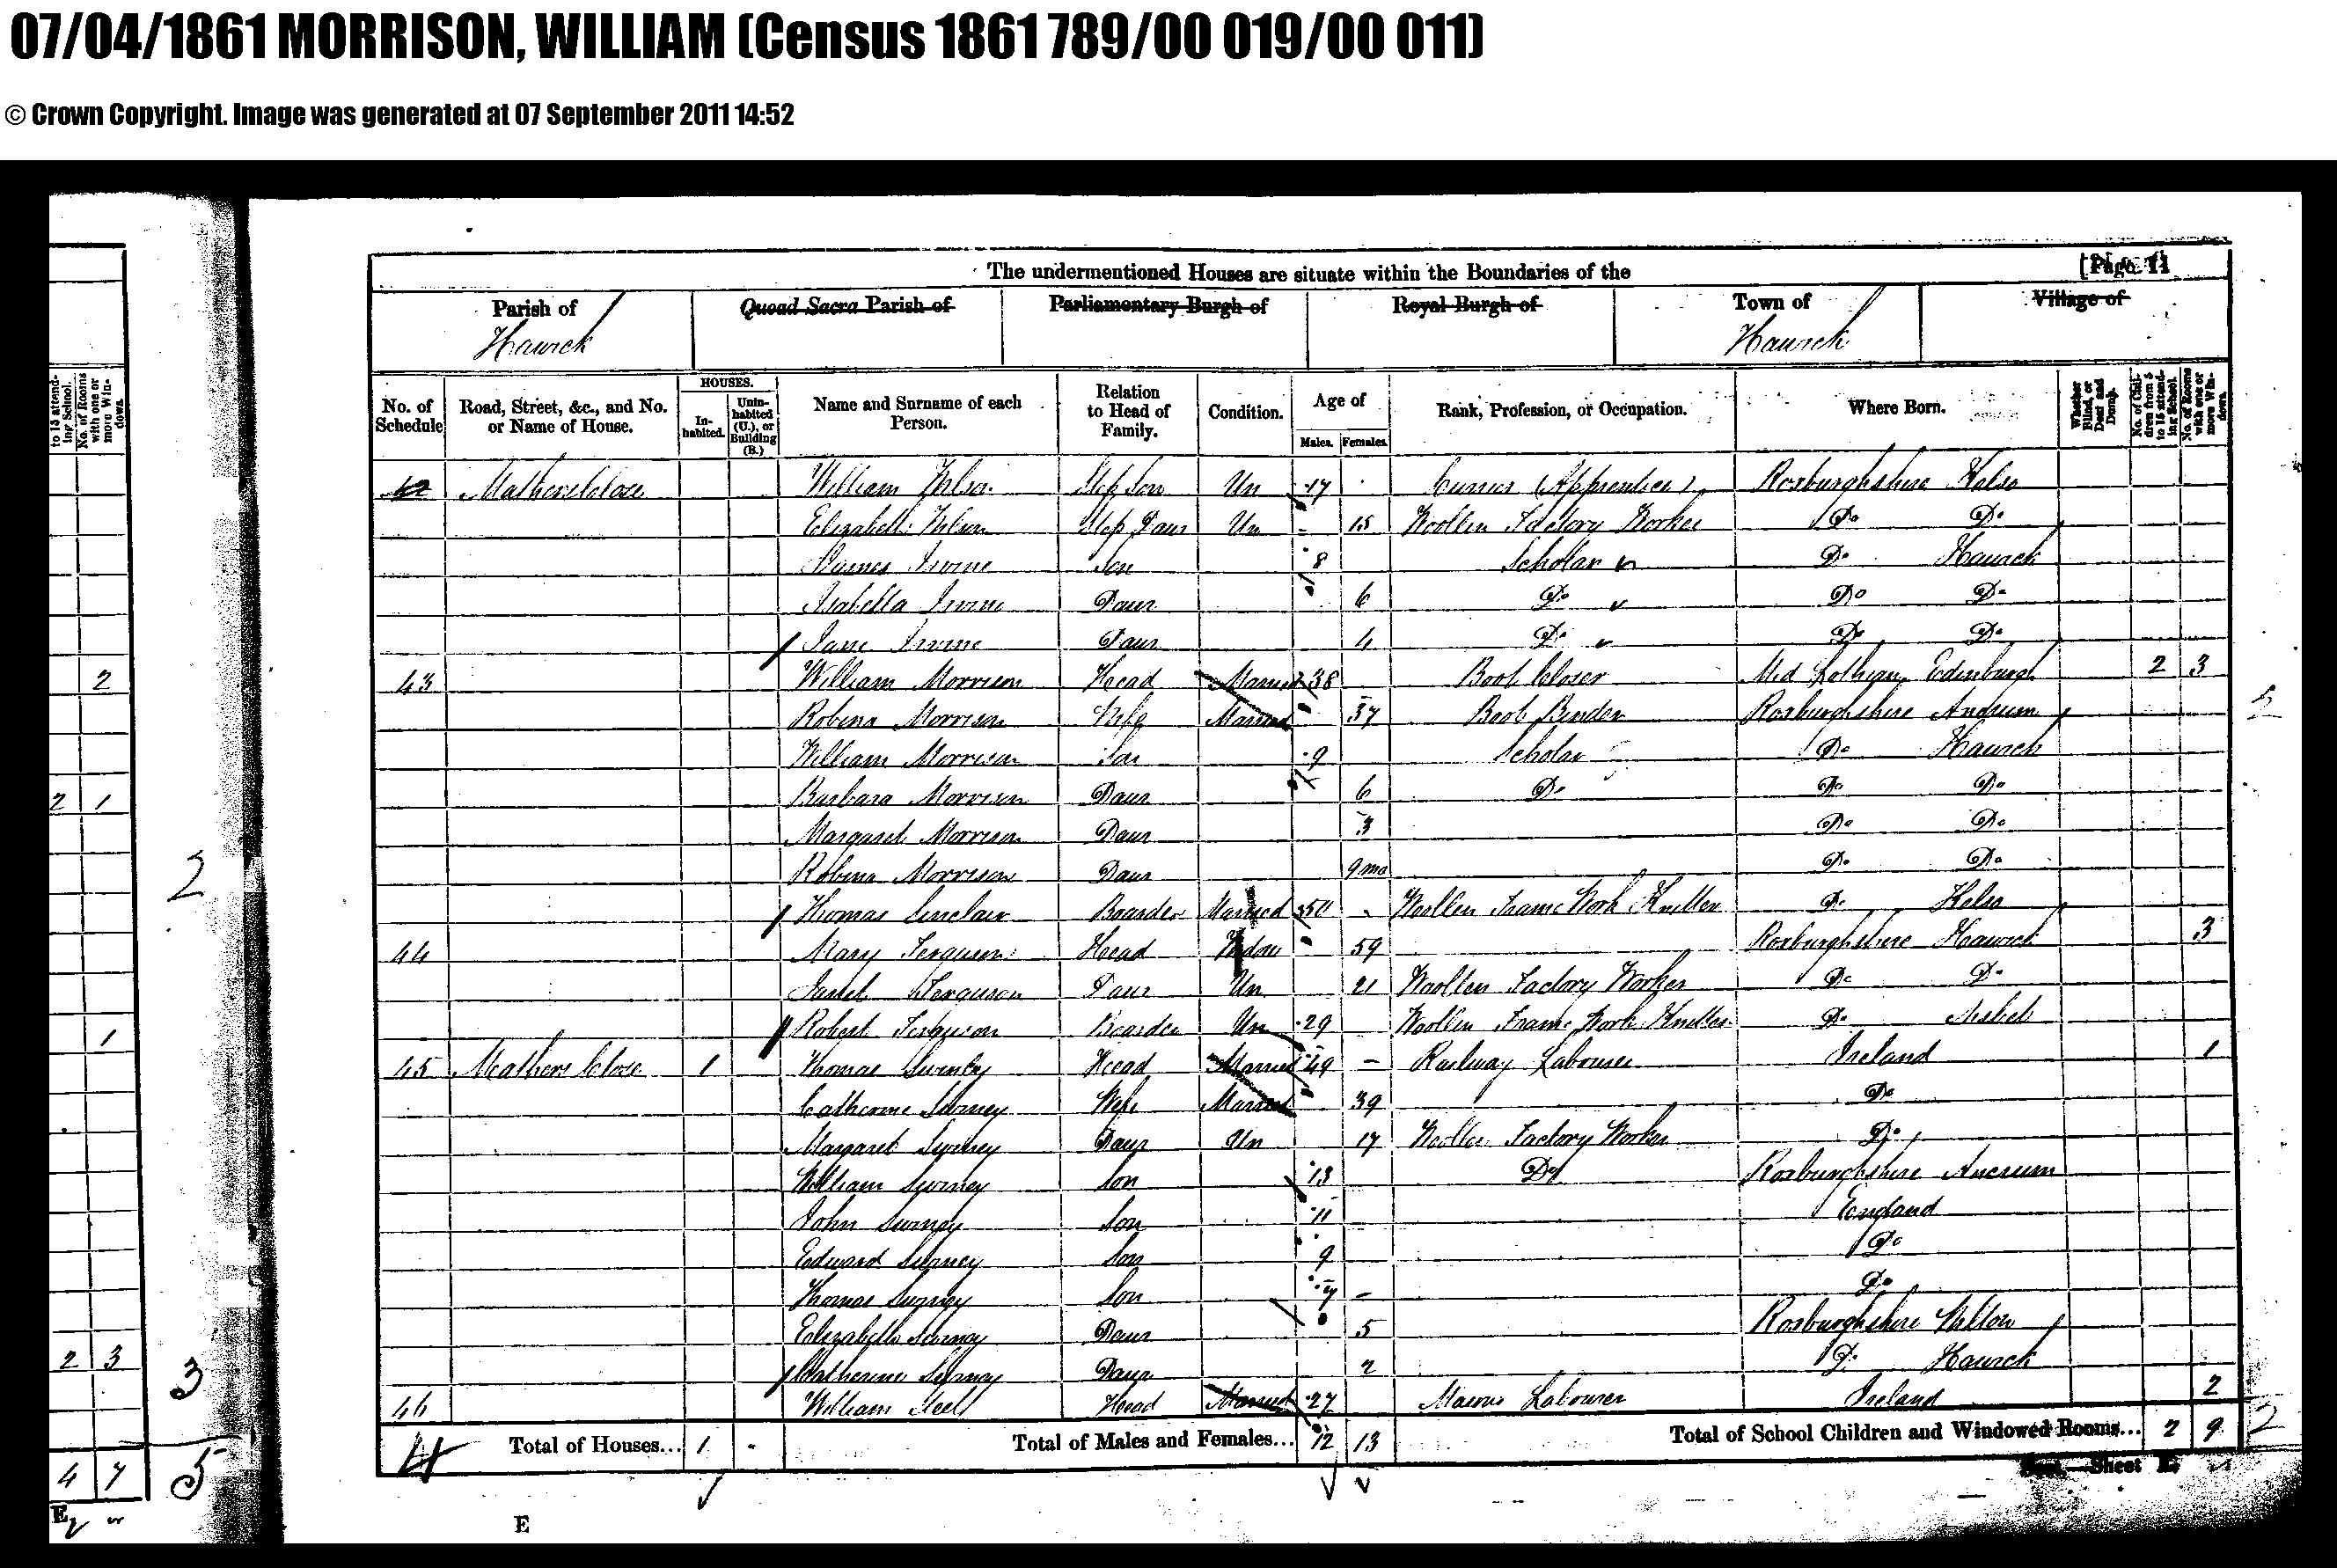 07/04/1861 MORRISON, WILLIAM (Census 1861 789/00 019/00 011)
© Crown Copyright. Image was generated at 07 September 2011 14:52
The undermentioned Houses are situate within the Boundaries of the [Page 11
Parish of Quoad Sacra Parish of Parliamentary Burgh of Royal Burgh of Town of Village of
Hawick Hawick
No. of Schedule Road, Street, &c., and No. or Name of House. HOUSES. Inhabited. Uninhabited (U.), or Building (B.) Name and Surname of each Person. Relation to Head of Family. Condition. Age of Males. Females. Rank, Profession, or Occupation. Where Born. Whether Blind, or Deaf and Dumb. No. of Children from 5 to 15 attending School. No. of Rooms with one or more Windows.
42 Mathers Close William Step Son Un 17 Currier (Apprentice) Roxburghshire Kelso
Elizabeth Step Daur Un 15 Woollen Factory Worker Do Do
James Irvine Son 8 Scholar Do Hawick
Isabella Irvine Daur 6 Do Do Do
Jane Irvine Daur 4 Do Do Do
43 William Morrison Head Married 38 Boot Closer Mid Lothian Edinburgh 2 3
Robina Morrison Wife Married 37 Boot Binder Roxburghshire Ancrum
William Morrison Son 9 Scholar Do Hawick
Barbara Morrison Daur 6 Do Do Do
Margaret Morrison Daur 3 Do Do
Robina Morrison Daur 9 mo Do Do
Thomas Sinclair Boarder Married 50 Woollen Frame Work Knitter Do Kelso
44 Mary Ferguson Head Widow 59 Roxburghshire Hawick 3
Janet Ferguson Daur Un 21 Woollen Factory Worker Do Do
Robert Ferguson Boarder Un 29 Woollen Frame Work Knitter Do
45 Mathers Close 1 Thomas Head Married 49 Railway Labourer Ireland 1
Catherine Wife Married 39 Do
Margaret Daur Un 17 Woollen Factory Worker Do
William Son 13 Do Roxburghshire Ancrum
John Son 11 England
Edward Son 9 Do
Thomas Son 7 Do
Elizabeth Daur 5 Roxburghshire
Catherine Daur 2 Do Hawick
46 William Head Married 27 Masons Labourer Ireland 2
4 Total of Houses... 1 Total of Males and Females... 12 13 Total of School Children and Windowed Rooms... 2 9
E